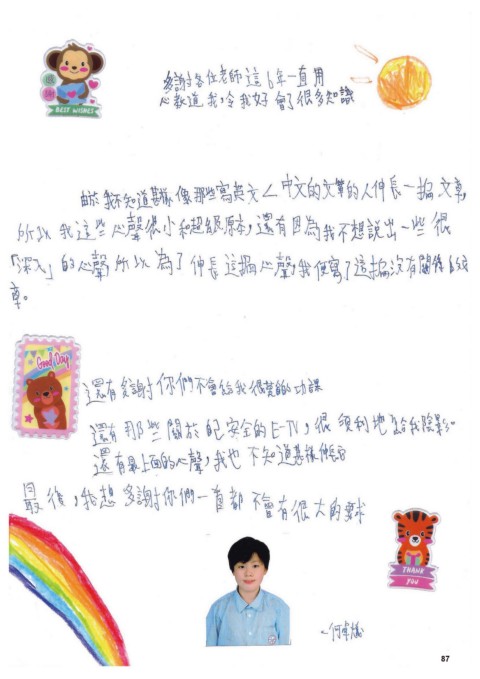 多謝各位老師這6年一直用
心教道我,令我好會了很多知識
BEST WISHES
由於我不知道甚樣像那些寫英文 中文的文章的人伸長一篇文章,
所以我這些心聲很小和超級原本,還有因為我不想說出一些很
「深入」的心聲所以為了伸長這篇心聲,我便寫了這篇沒有關係的文
章。
Good Day
還有多謝你們不會給我很難的功課
還有那些關於 安全的E-TV,很順利地給我陰影。
還有最上面的心聲,我也不知道甚樣
最後,我想多謝你們一直都不會有很大的要求
THANK
YOU
87